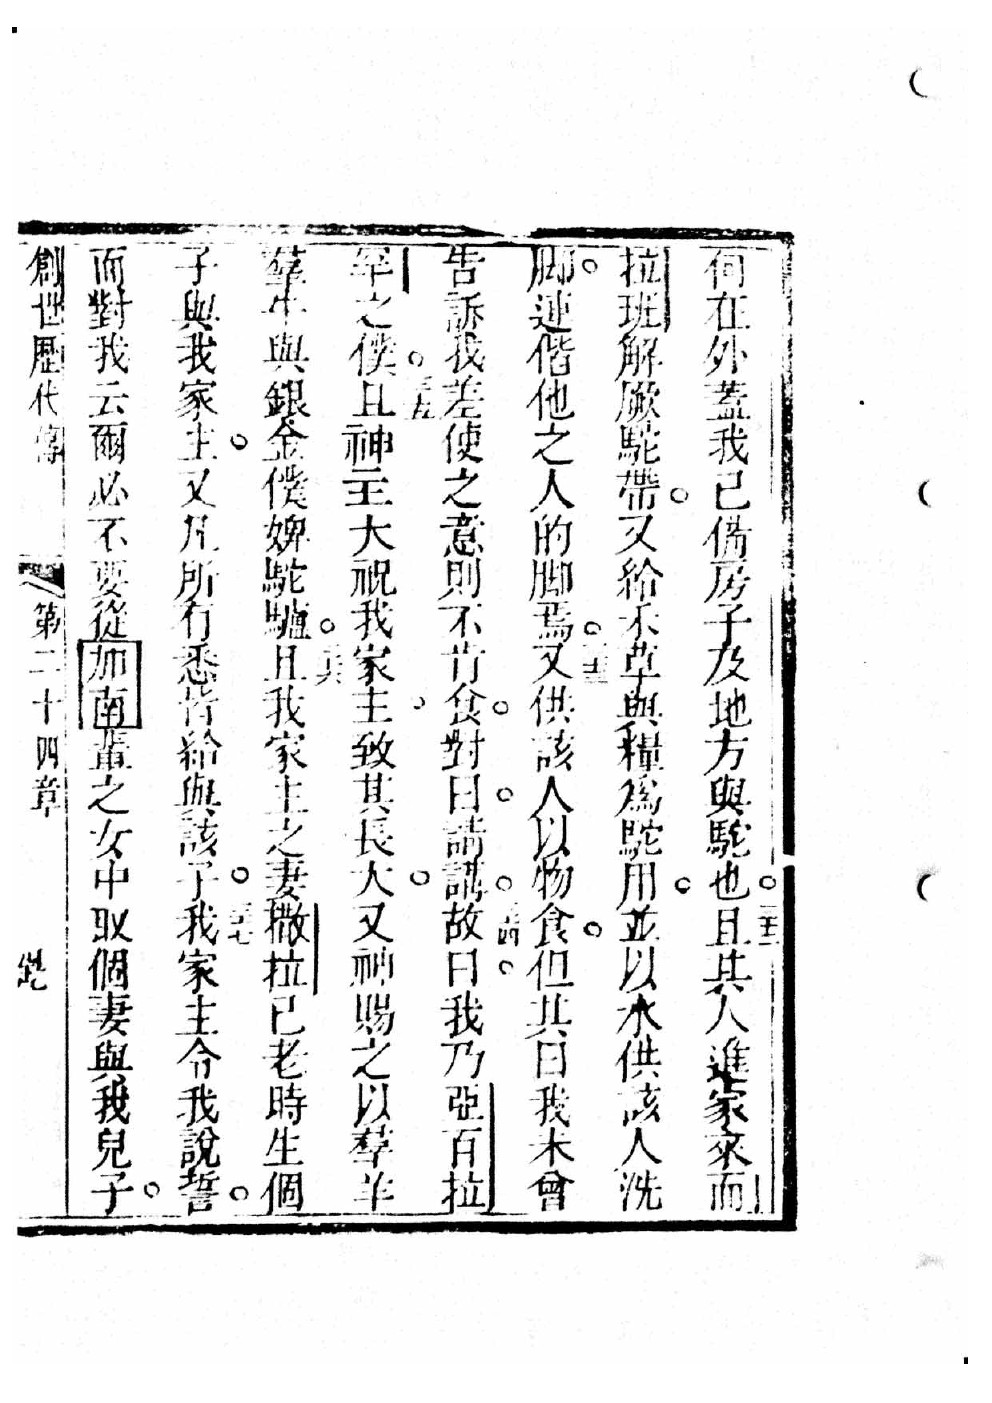 何在外蓋我已備房子及地方與駝也。三十二且其人進家來而
拉班解厥駝帶。又給禾草與糧爲駝用。並以水供該人洗
脚。連偕他之人的脚焉。三十三又供該人以物食。但其曰我未曾
告訴我差使之意則不肯食。對曰。請講。三十四故曰。我乃亞百拉
罕之僕。三十五且神主大祝我家主。致其長大。又神賜之以羣羊
羣牛與銀金僕婢駝驢。三十六且我家主之妻撒拉已老時生個
子與我家主。又凡所有悉皆給與該子。三十七我家主令我說誓。
而對我云爾必不要從加南輩之女中取個妻與我兒子。
創世歷代傳 第二十四章